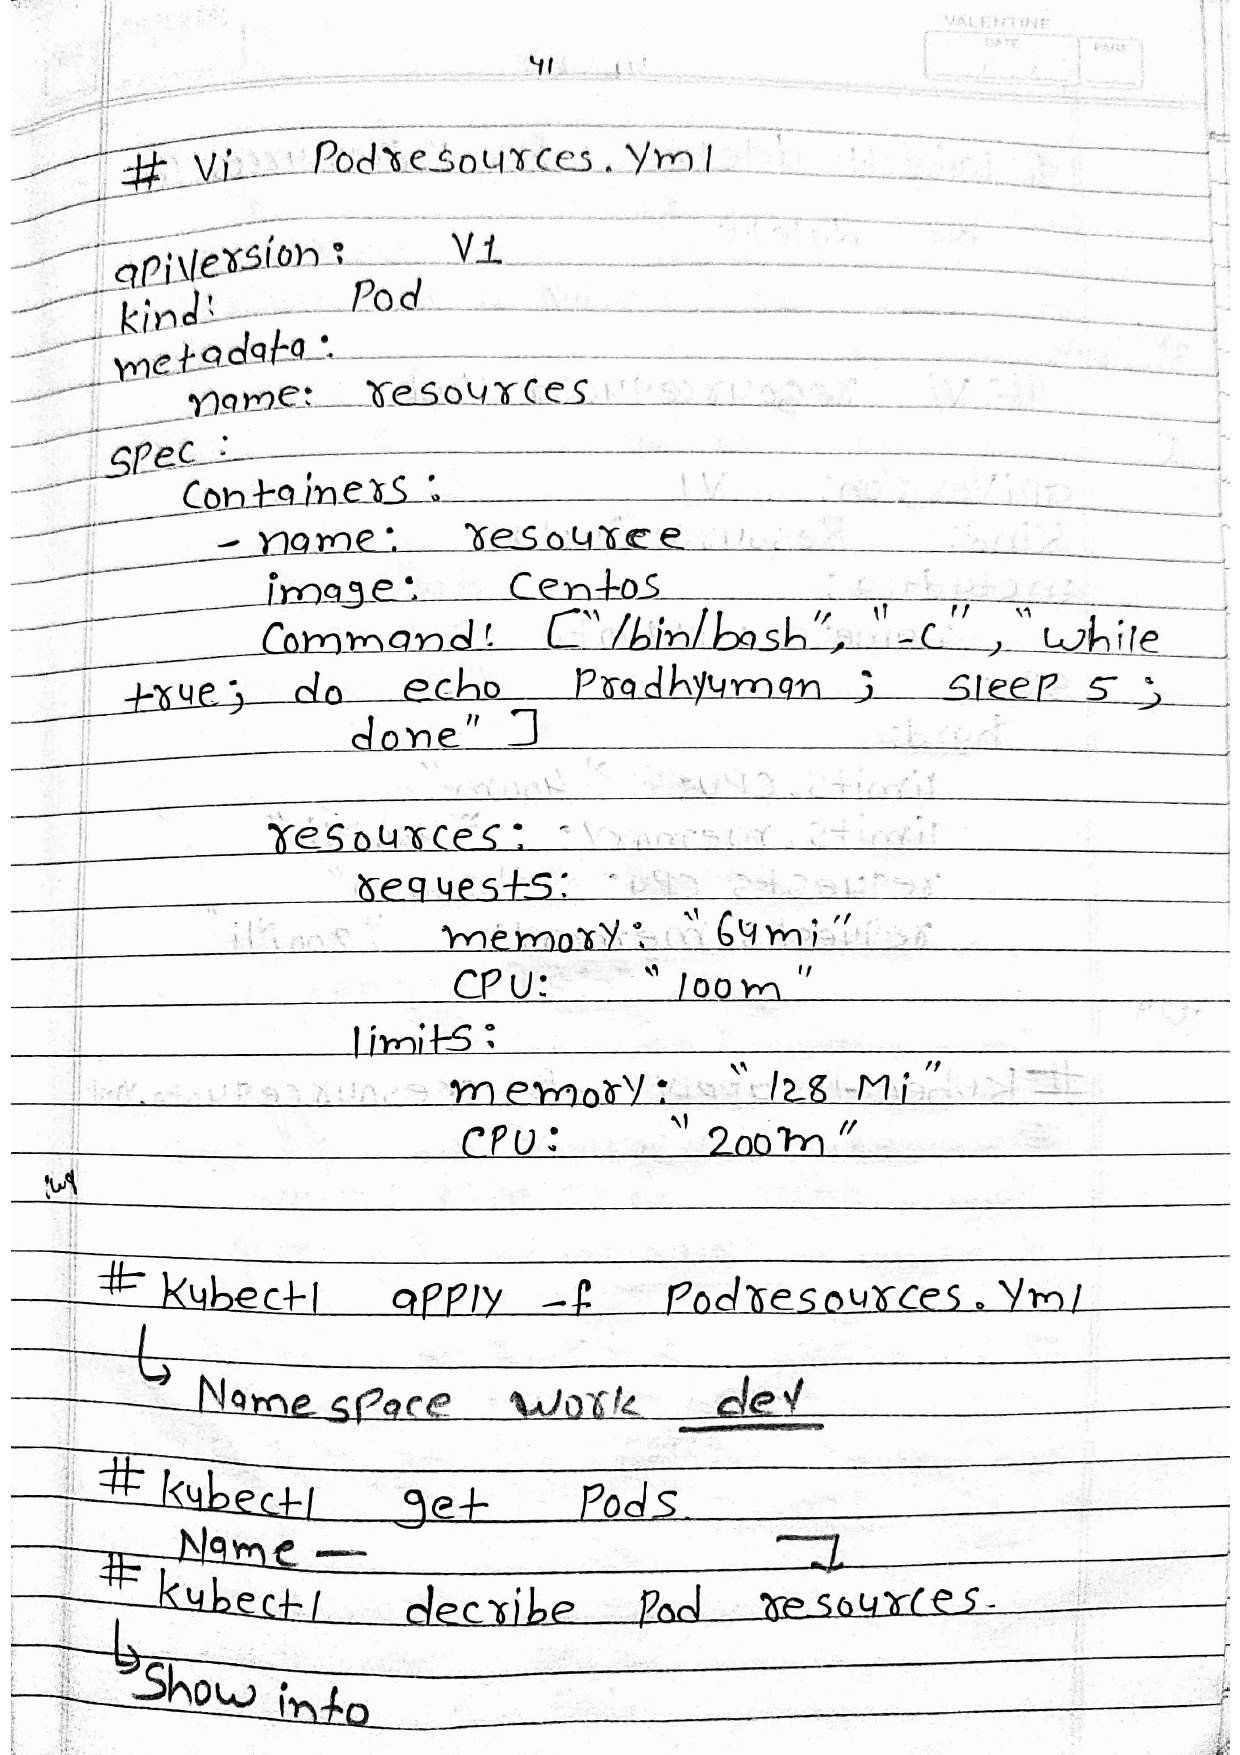 VALENTINE
DATE PAGE
41
# Vi Podresources.Yml
apiVersion: V1
kind: Pod
metadata:
name: resources
spec:
Containers:
- name: resource
image: Centos
Command: ["/bin/bash", "-c", "while
true; do echo Pradhyuman ; sleep 5 ;
done" ]
resources:
requests:
memory: "64mi"
CPU: "100m"
limits:
memory: "128 Mi"
CPU: "200m"
# Kubectl apply -f Podresources.Yml
↳ Namespace work dev
# Kubectl get Pods.
Name —
# kubectl decribe Pod resources.
↳ Show info